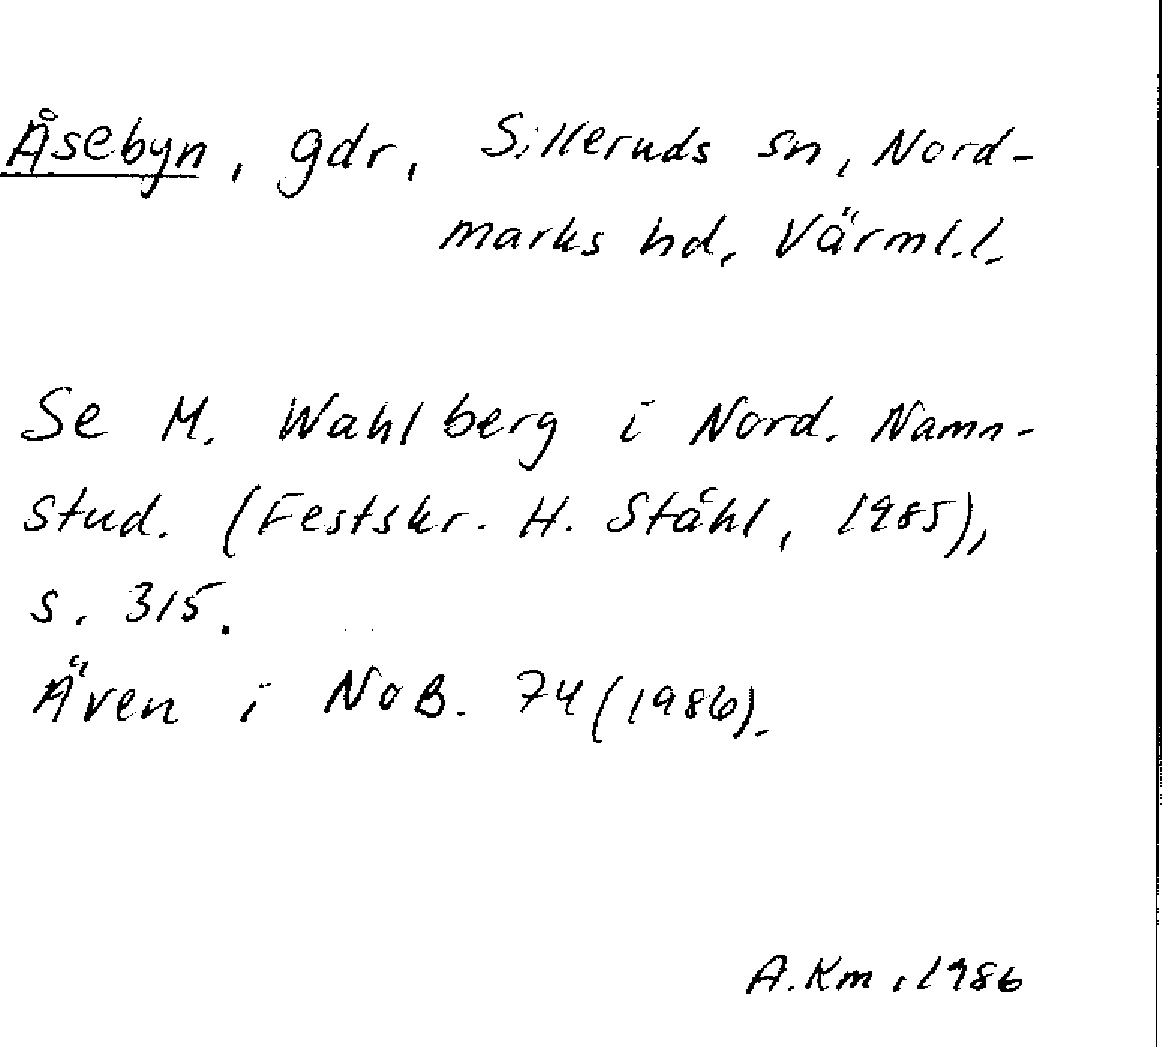 Åsebyn, gdr, Silleruds sn, Nord-
marks hd, Värml.l.
Se M. Wahlberg i Nord. Namn-
stud. (Festskr. H. Ståhl, 1985),
s. 315.
Även i NoB. 74 (1986).
A.Km, 1986